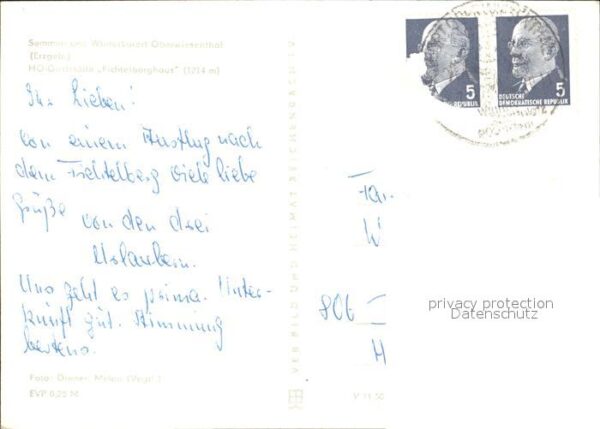 Sommer- und Winterkurort Oberwiesenthal
(Erzgeb.)
HO-Gaststätte „Fichtelberghaus" (1214 m)
Ihr Lieben!
Von einem Ausflug nach
dem Fichtelberg viele liebe
Grüße von den drei
Urlaubern.
Uns geht es prima. Unter-
kunft gut. Stimmung
bestens.
Foto: Darmer,
EVP 0,25 M
VEB BILD UND HEIMAT REICHENBACH I. V.
V 11 50
5
REPUBLIK
5
DEUTSCHE
DEMOKRATISCHE REPUBLIK
Fam.
W
806
H
privacy protection
Datenschutz